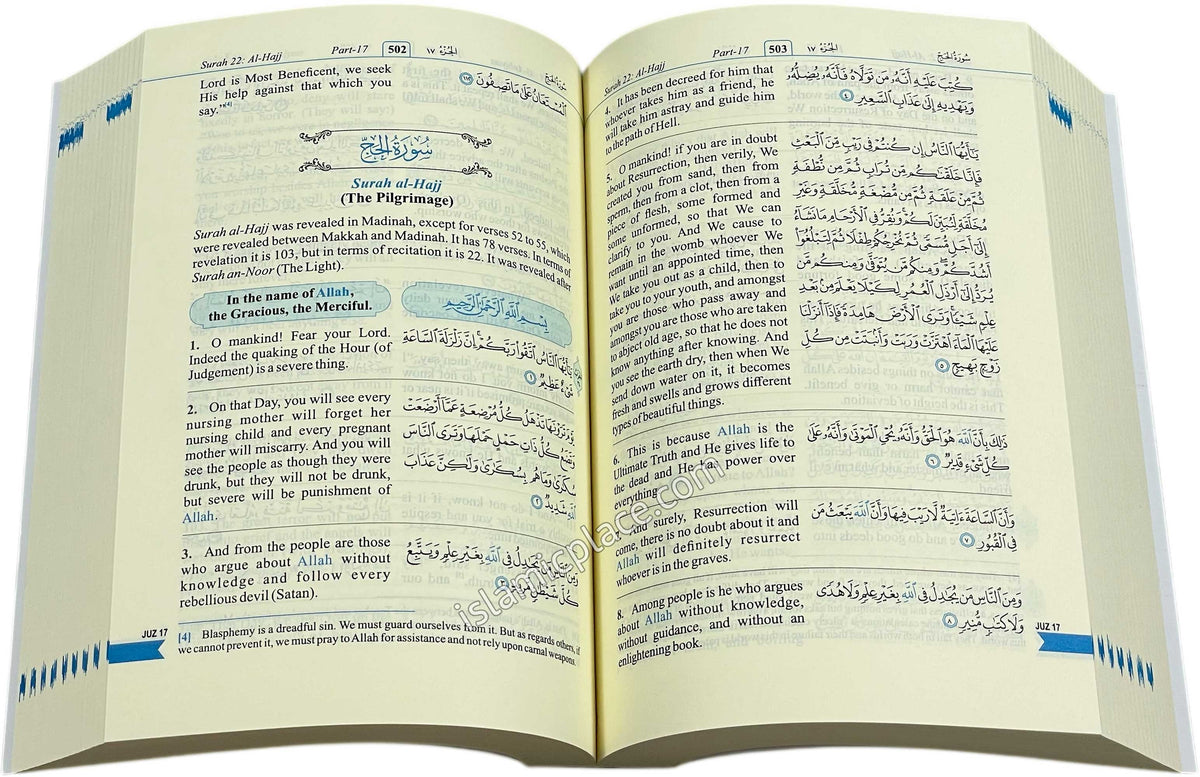 Surah 22: Al-Hajj Part-17 502 الجزء ١٧ سورة الحج
Lord is Most Beneficent, we seek
His help against that which you
say."[4]
ٱلْمُسْتَعَانُ عَلَىٰ مَا تَصِفُونَ ١١٢
سُورَةُ الحَجِّ
Surah al-Hajj
(The Pilgrimage)
Surah al-Hajj was revealed in Madinah, except for verses 52 to 55, which
were revealed between Makkah and Madinah. It has 78 verses. In terms of
revelation it is 103, but in terms of recitation it is 22. It was revealed after
Surah an-Noor (The Light).
In the name of Allah,
the Gracious, the Merciful.
بِسْمِ ٱللَّهِ ٱلرَّحْمَٰنِ ٱلرَّحِيمِ
1. O mankind! Fear your Lord.
Indeed the quaking of the Hour (of
Judgement) is a severe thing.
يَٰٓأَيُّهَا ٱلنَّاسُ ٱتَّقُوا۟ رَبَّكُمْ إِنَّ زَلْزَلَةَ ٱلسَّاعَةِ
شَىْءٌ عَظِيمٌ ١
2. On that Day, you will see every
nursing mother will forget her
nursing child and every pregnant
mother will miscarry. And you will
see the people as though they were
drunk, but they will not be drunk,
but severe will be punishment of
Allah.
يَوْمَ تَرَوْنَهَا تَذْهَلُ كُلُّ مُرْضِعَةٍ عَمَّآ أَرْضَعَتْ
وَتَضَعُ كُلُّ ذَاتِ حَمْلٍ حَمْلَهَا وَتَرَى ٱلنَّاسَ
سُكَٰرَىٰ وَمَا هُم بِسُكَٰرَىٰ وَلَٰكِنَّ عَذَابَ
ٱللَّهِ شَدِيدٌ ٢
3. And from the people are those
who argue about Allah without
knowledge and follow every
rebellious devil (Satan).
وَمِنَ ٱلنَّاسِ مَن يُجَٰدِلُ فِى ٱللَّهِ بِغَيْرِ عِلْمٍ وَيَتَّبِعُ
كُلَّ شَيْطَٰنٍ مَّرِيدٍ ٣
[4] Blasphemy is a dreadful sin. We must guard ourselves from it. But as regards others, if
we cannot prevent it, we must pray to Allah for assistance and not rely upon carnal weapons.
JUZ 17
Surah 22: Al-Hajj Part-17 503 الجزء ١٧ سورة الحج
4. It has been decreed for him that
whoever takes him as a friend, he
will take him astray and guide him
to the path of Hell.
كُتِبَ عَلَيْهِ أَنَّهُۥ مَن تَوَلَّاهُ فَأَنَّهُۥ يُضِلُّهُۥ
وَيَهْدِيهِ إِلَىٰ عَذَابِ ٱلسَّعِيرِ ٤
5. O mankind! if you are in doubt
about Resurrection, then verily, We
created you from sand, then from
sperm, then from a clot, then from a
piece of flesh, some formed and
some unformed, so that We can
clarify to you. And We cause to
remain in the womb whoever We
want until an appointed time, then
We take you out as a child, then to
take you to your youth, and amongst
you are those who pass away and
amongst you are those who are taken
to abject old age, so that he does not
know anything after knowing. And
you see the earth dry, then when We
send down water on it, it becomes
fresh and swells and grows different
types of beautiful things.
يَٰٓأَيُّهَا ٱلنَّاسُ إِن كُنتُمْ فِى رَيْبٍ مِّنَ ٱلْبَعْثِ
فَإِنَّا خَلَقْنَٰكُم مِّن تُرَابٍ ثُمَّ مِن نُّطْفَةٍ
ثُمَّ مِنْ عَلَقَةٍ ثُمَّ مِن مُّضْغَةٍ مُّخَلَّقَةٍ وَغَيْرِ
مُخَلَّقَةٍ لِّنُبَيِّنَ لَكُمْ وَنُقِرُّ فِى ٱلْأَرْحَامِ مَا نَشَآءُ
إِلَىٰٓ أَجَلٍ مُّسَمًّى ثُمَّ نُخْرِجُكُمْ طِفْلًا ثُمَّ لِتَبْلُغُوٓا۟
أَشُدَّكُمْ وَمِنكُم مَّن يُتَوَفَّىٰ وَمِنكُم مَّن
يُرَدُّ إِلَىٰٓ أَرْذَلِ ٱلْعُمُرِ لِكَيْلَا يَعْلَمَ مِنۢ بَعْدِ
عِلْمٍ شَيْـًٔا وَتَرَى ٱلْأَرْضَ هَامِدَةً فَإِذَآ أَنزَلْنَا
عَلَيْهَا ٱلْمَآءَ ٱهْتَزَّتْ وَرَبَتْ وَأَنۢبَتَتْ مِن كُلِّ
زَوْجٍۭ بَهِيجٍ ٥
6. This is because Allah is the
Ultimate Truth and He gives life to
the dead and He has power over
everything.
ذَٰلِكَ بِأَنَّ ٱللَّهَ هُوَ ٱلْحَقُّ وَأَنَّهُۥ يُحْىِ ٱلْمَوْتَىٰ وَأَنَّهُۥ عَلَىٰ
كُلِّ شَىْءٍ قَدِيرٌ ٦
7. And surely, Resurrection will
come, there is no doubt about it and
Allah will definitely resurrect
whoever is in the graves.
وَأَنَّ ٱلسَّاعَةَ ءَاتِيَةٌ لَّا رَيْبَ فِيهَا وَأَنَّ ٱللَّهَ يَبْعَثُ مَن
فِى ٱلْقُبُورِ ٧
8. Among people is he who argues
about Allah without knowledge,
without guidance, and without an
enlightening book.
وَمِنَ ٱلنَّاسِ مَن يُجَٰدِلُ فِى ٱللَّهِ بِغَيْرِ عِلْمٍ وَلَا هُدًى
وَلَا كِتَٰبٍ مُّنِيرٍ ٨
JUZ 17
islamicplace.com